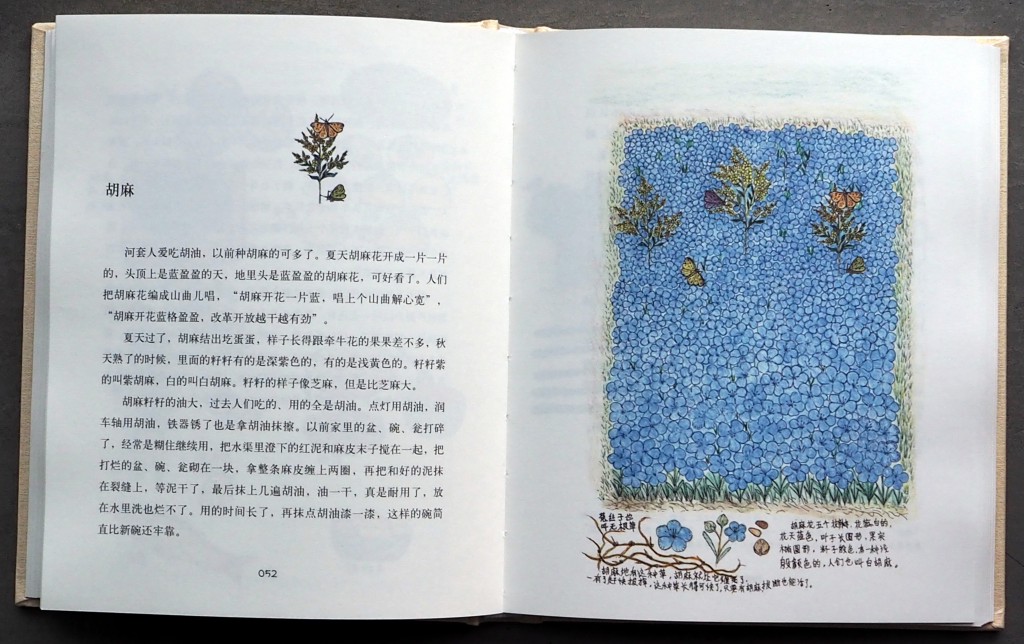 胡麻
河套人爱吃胡油，以前种胡麻的可多了。夏天胡麻花开成一片一片
的，头顶上是蓝盈盈的天，地里头是蓝盈盈的胡麻花，可好看了。人们
把胡麻花编成山曲儿唱，“胡麻开花一片蓝，唱上个山曲解心宽”，
“胡麻开花蓝格盈盈，改革开放越干越有劲”。
夏天过了，胡麻结出圪蛋蛋，样子长得跟牵牛花的果果差不多，秋
天熟了的时候，里面的籽籽有的是深紫色的，有的是浅黄色的。籽籽紫
的叫紫胡麻，白的叫白胡麻。籽籽的样子像芝麻，但是比芝麻大。
胡麻籽籽的油大，过去人们吃的、用的全是胡油。点灯用胡油，润
车轴用胡油，铁器锈了也是拿胡油抹擦。以前家里的盆、碗、瓮打碎
了，经常是糊住继续用，把水渠里澄下的红泥和麻皮末子搅在一起，把
打烂的盆、碗、瓮砌在一块，拿整条麻皮缠上两圈，再把和好的泥抹
在裂缝上，等泥干了，最后抹上几遍胡油，油一干，真是耐用了，放
在水里洗也烂不了。用的时间长了，再抹点胡油漆一漆，这样的碗简
直比新碗还牢靠。
052
菟丝子也
叫无根草
胡麻花五个花瓣，花蕊白的，
花天蓝色，叶子长圆形，果实
椭圆形，籽子
色的，人们也叫白胡麻。
胡麻地有这种草，胡麻就让它缠死了，
一有了好好拔掉，这种草长得可快了，只要有胡麻